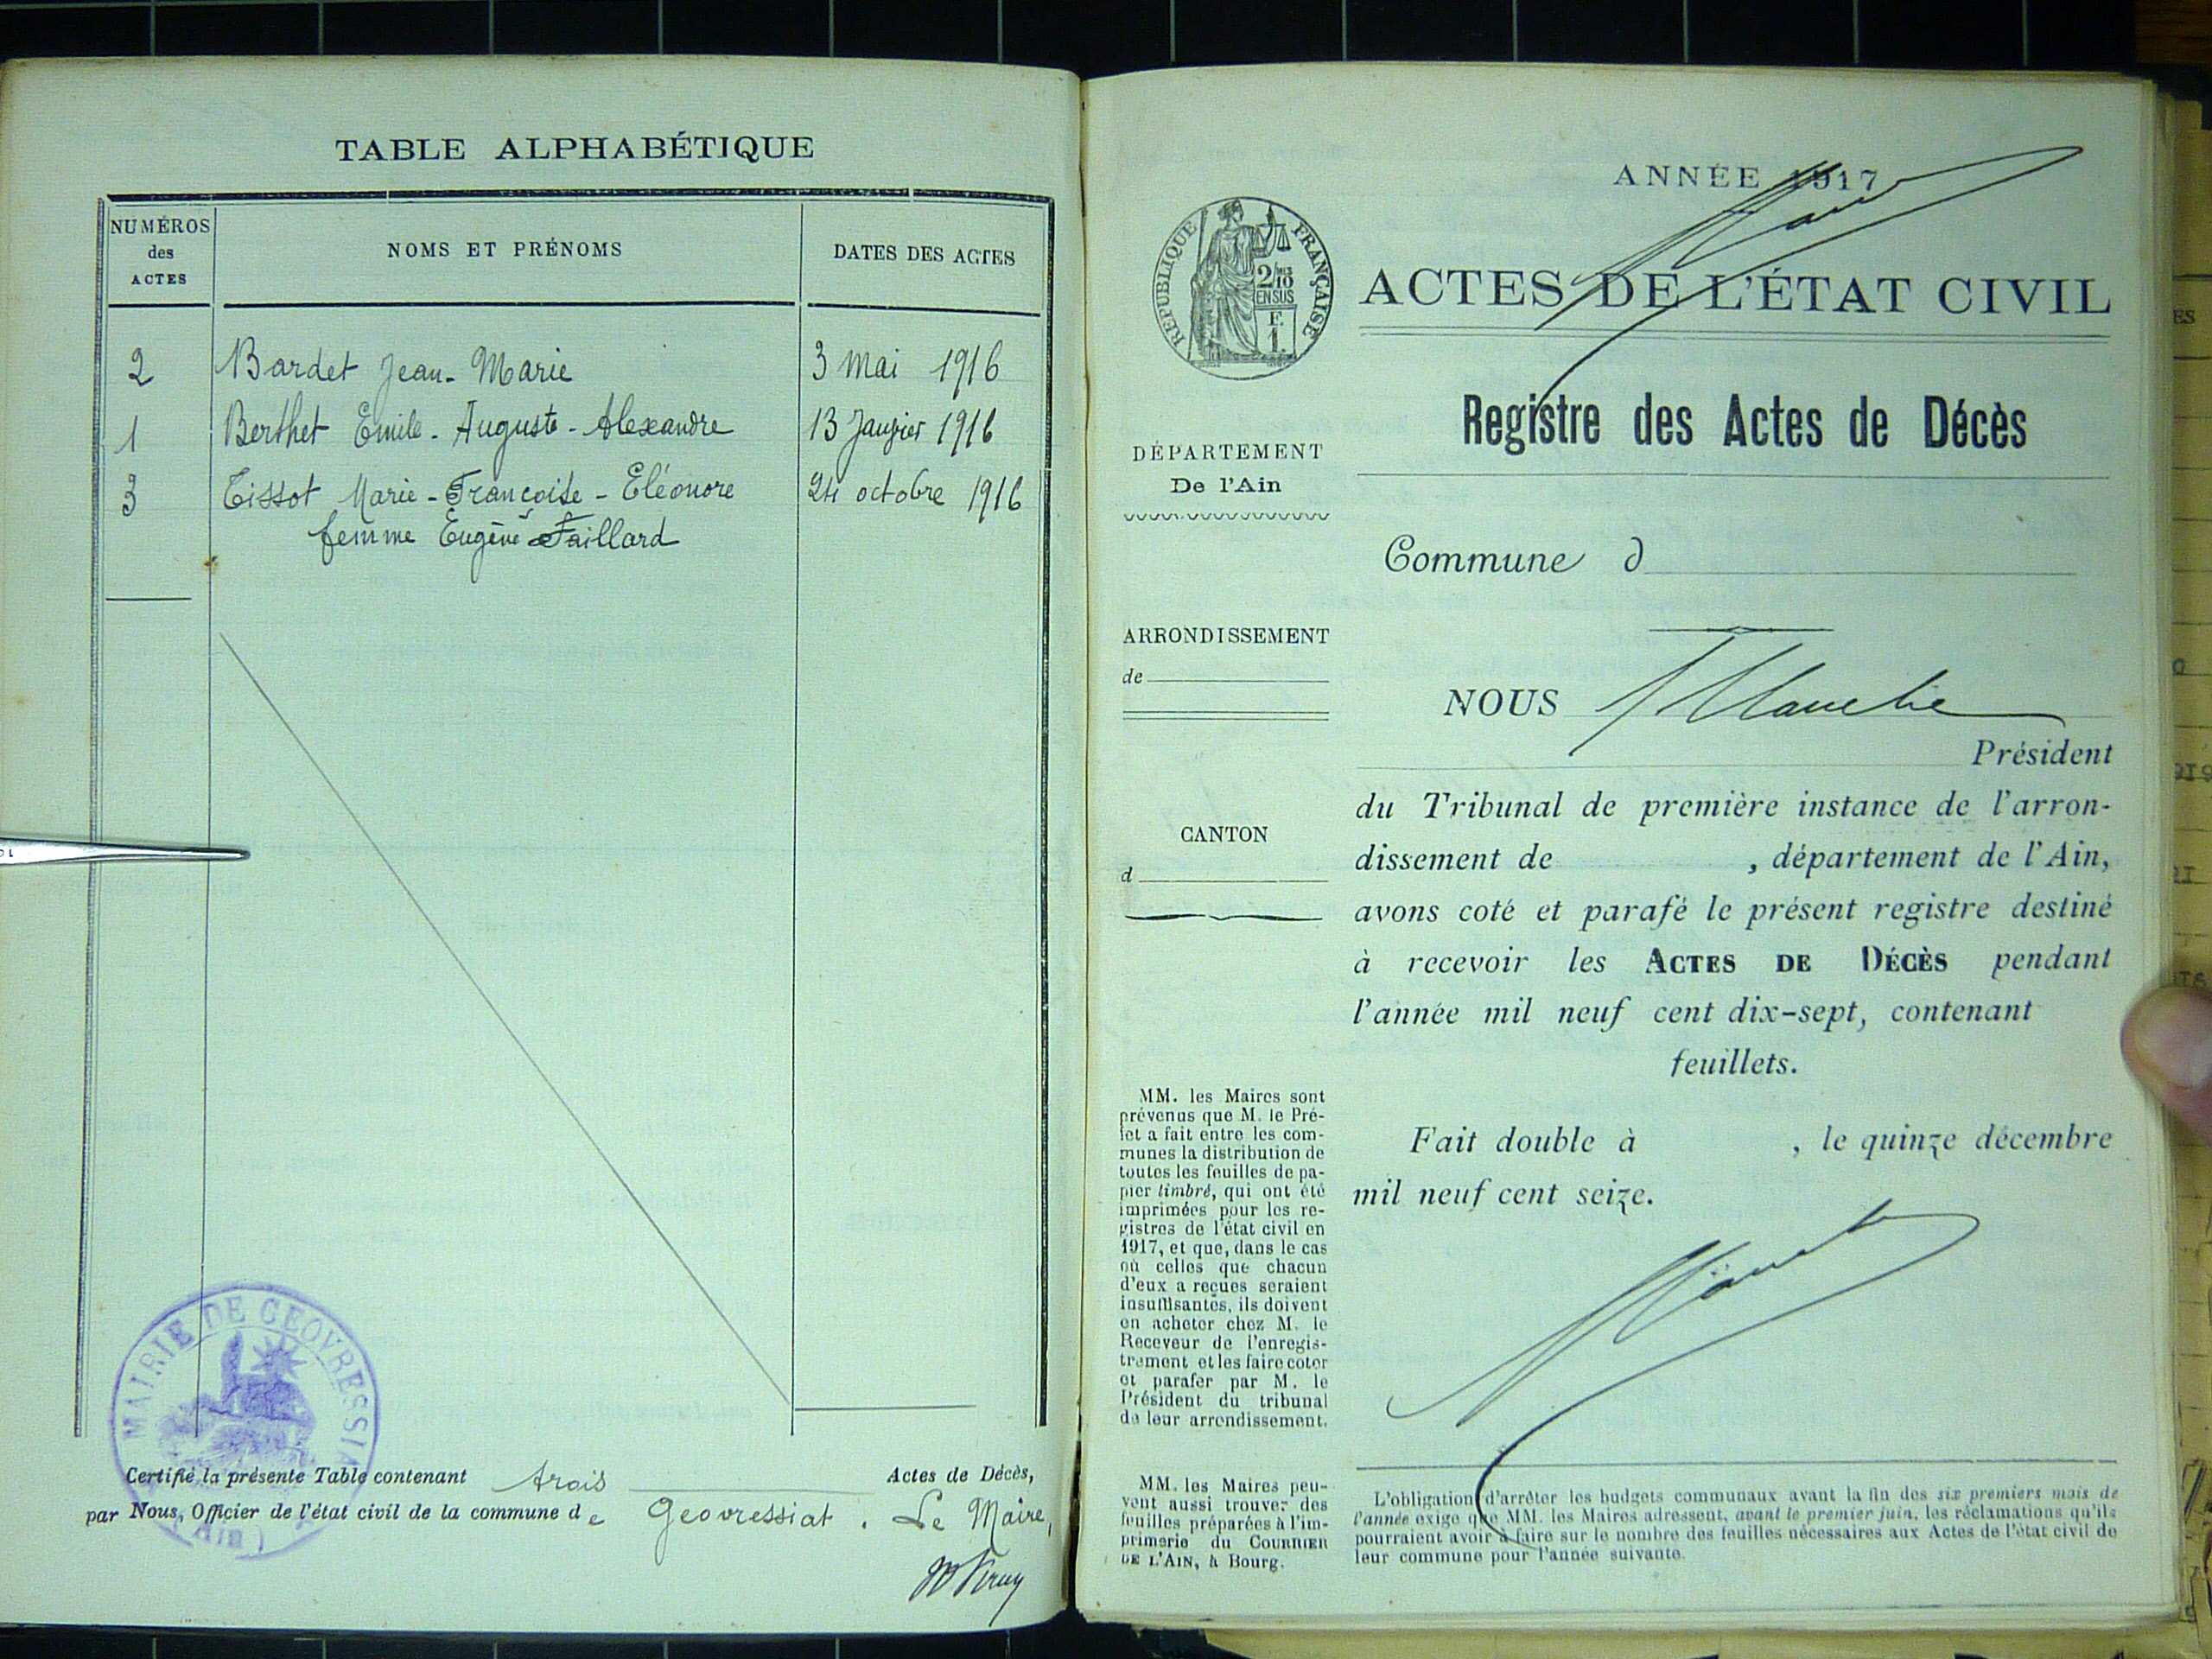 TABLE ALPHABÉTIQUE
NUMÉROS
des
ACTES
NOMS ET PRÉNOMS
DATES DES ACTES
2 Bardet Jean-Marie 3 Mai 1916
1 Berthet Emile-Auguste-Alexandre 13 Janvier 1916
3 Tissot Marie-Françoise-Eléonore 24 octobre 1916
femme Eugène Faillard
MAIRIE DE GEOVRESSIA
(Ain)
Certifié la présente Table contenant trois Actes de Décès,
par Nous, Officier de l'état civil de la commune de Geovressiat. Le Maire,
ANNÉE 1917
RÉPUBLIQUE FRANÇAISE
2/10
EN SUS
F.
1.
ACTES DE L'ÉTAT CIVIL
Registre des Actes de Décès
DÉPARTEMENT
De l'Ain
Commune d
ARRONDISSEMENT
de
CANTON
d
NOUS
Président
du Tribunal de première instance de l'arron-
dissement de , département de l'Ain,
avons coté et parafé le présent registre destiné
à recevoir les ACTES DE DÉCÈS pendant
l'année mil neuf cent dix-sept, contenant
feuillets.
Fait double à , le quinze décembre
mil neuf cent seize.
MM. les Maires sont
prévenus que M. le Pré-
fet a fait entre les com-
munes la distribution de
toutes les feuilles de pa-
pier timbré, qui ont été
imprimées pour les re-
gistres de l'état civil en
1917, et que, dans le cas
où celles que chacun
d'eux a reçues seraient
insuffisantes, ils doivent
en acheter chez M. le
Receveur de l'enregis-
trement et les faire coter
et parafer par M. le
Président du tribunal
de leur arrondissement.
MM. les Maires peu-
vent aussi trouver des
feuilles préparées à l'im-
primerie du COURRIER
DE L'AIN, à Bourg.
L'obligation d'arrêter les budgets communaux avant la fin des six premiers mois de
l'année exige que MM. les Maires adressent, avant le premier juin, les réclamations qu'ils
pourraient avoir à faire sur le nombre des feuilles nécessaires aux Actes de l'état civil de
leur commune pour l'année suivante.